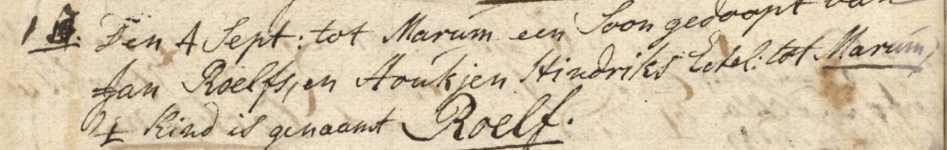 Den 4 Sept: tot Marum een Soon gedoopt van
Jan Roelfs, en Houkjen Hindriks Echtel: tot Marum,
't kind is genaamt Roelf.